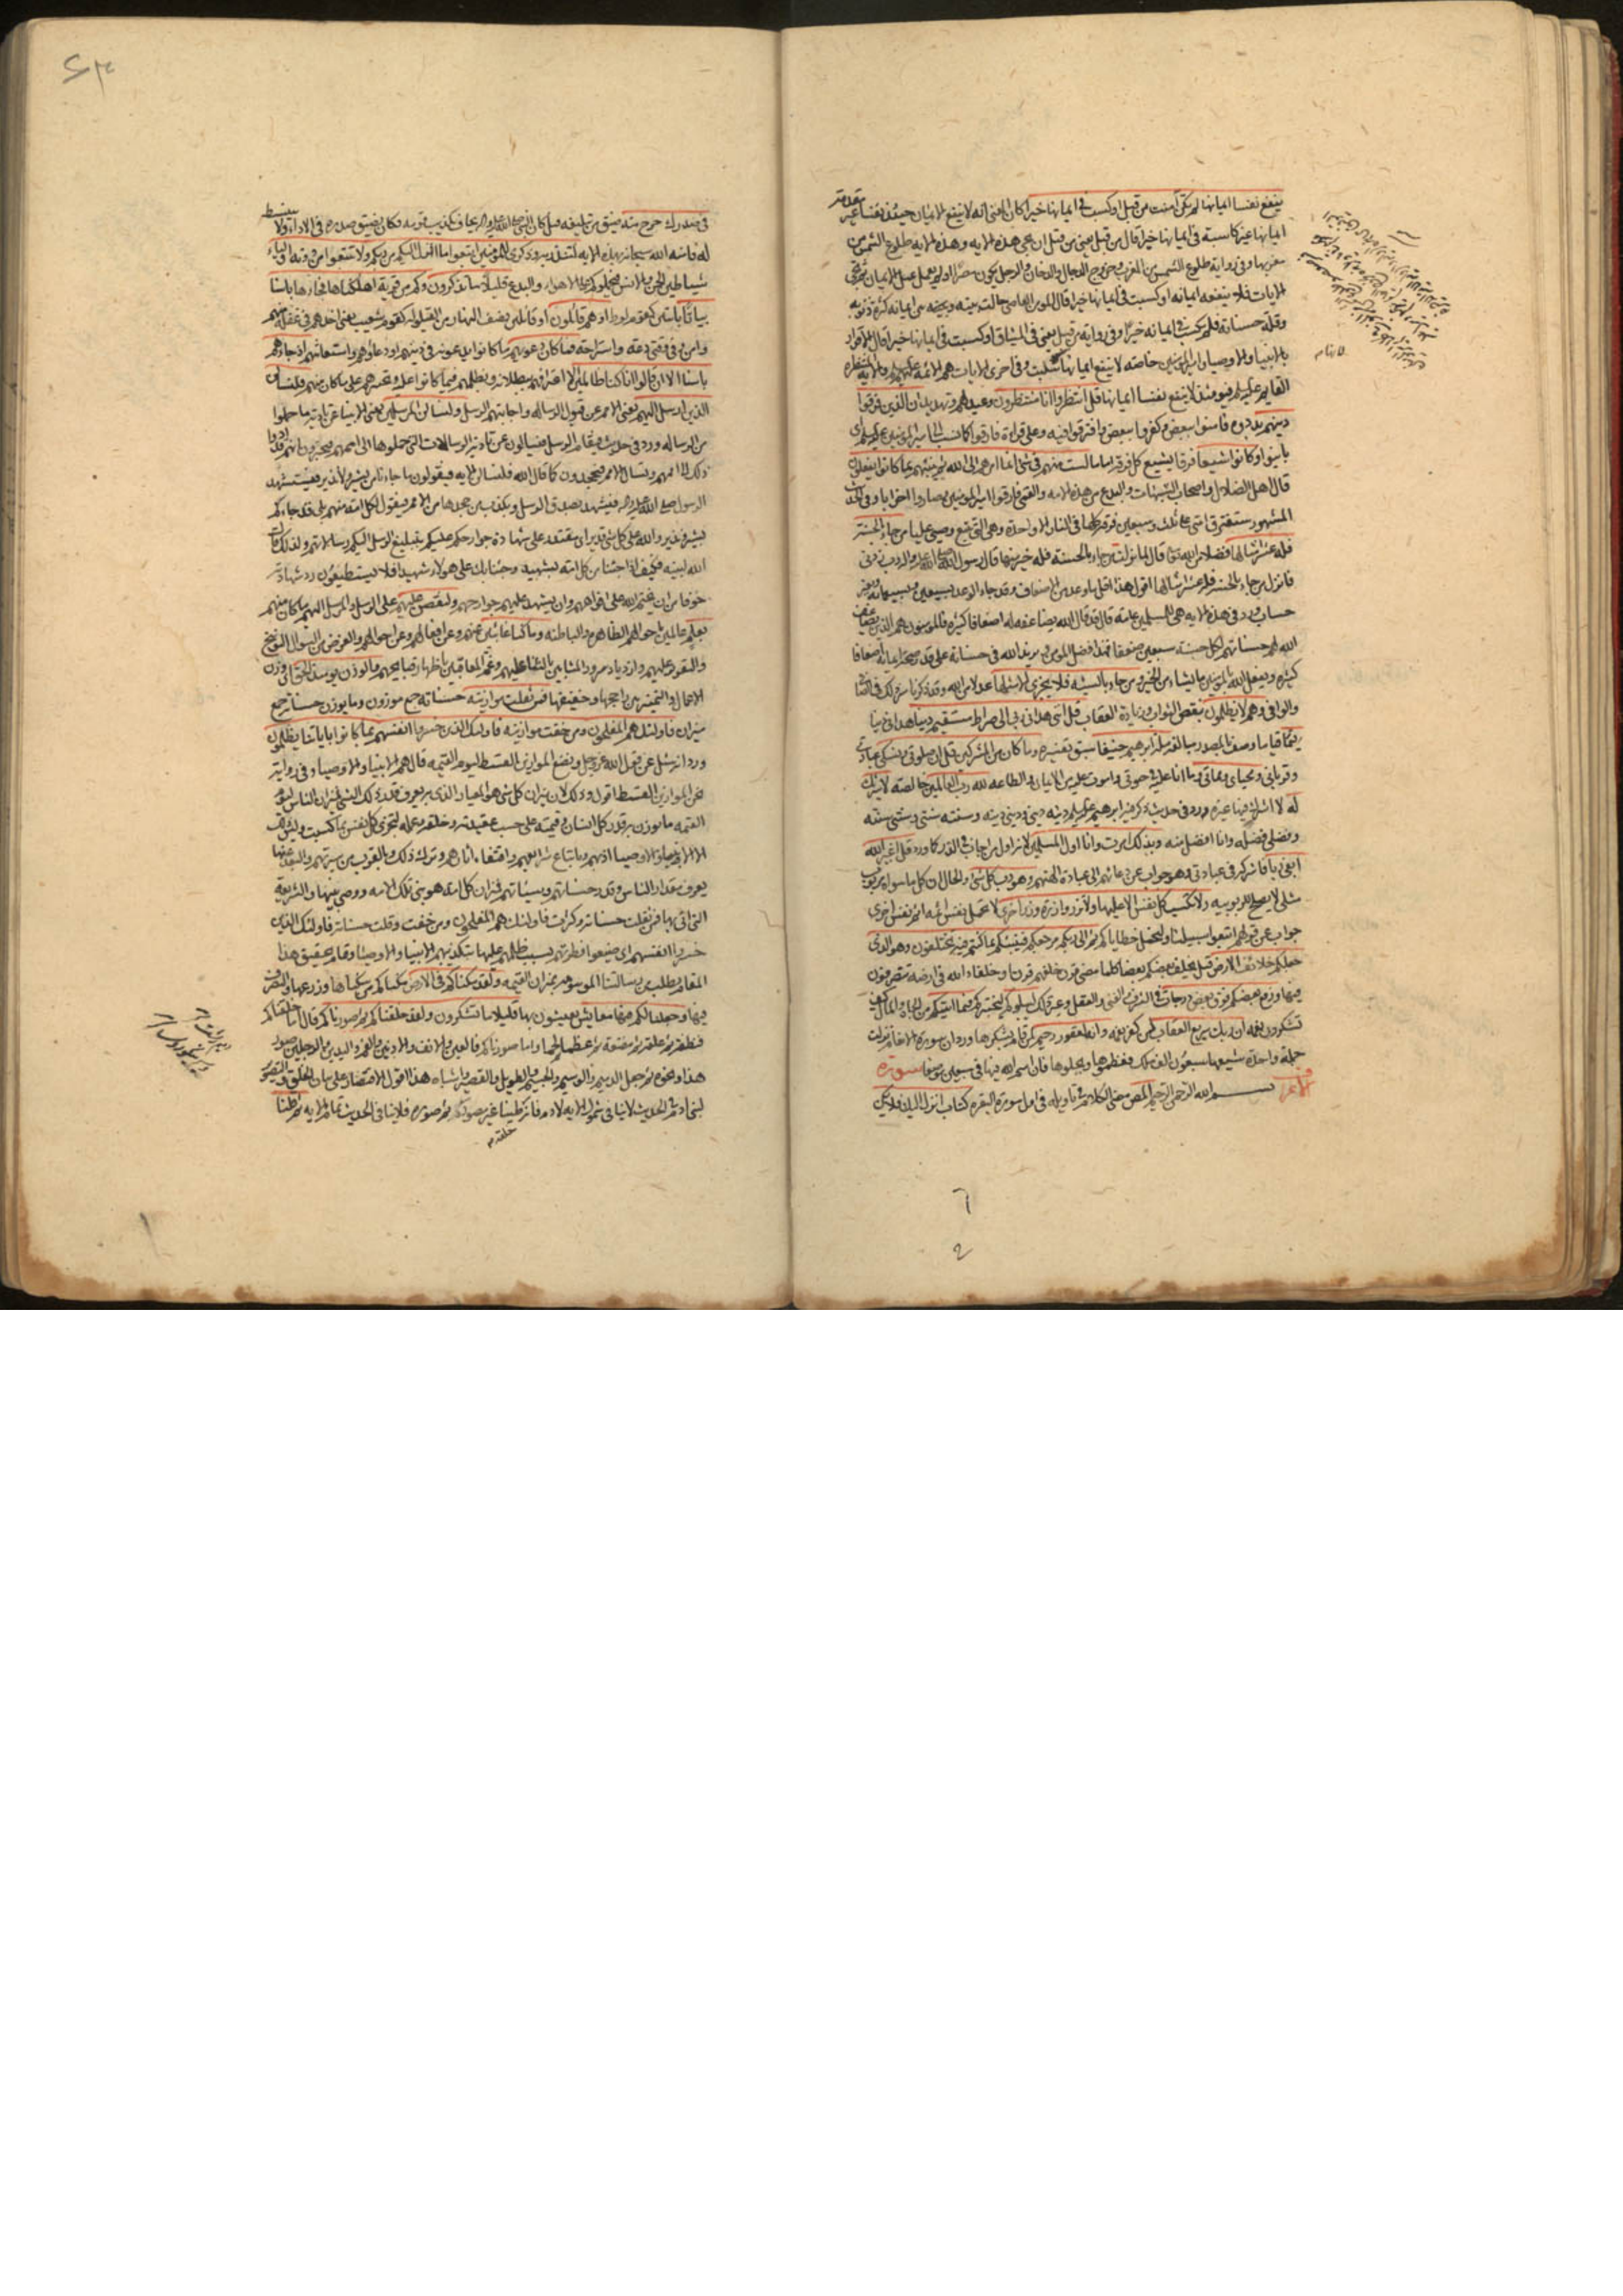 ينفع نفسا ايمانها لم تكن آمنت من قبل او كسبت في ايمانها خيرا كان المعنى انه لا ينفع الايمان حينئذ نفسا غير مقدمة
ايمانها غير كاسبة في ايمانها خيرا قال من قبل يعني من قبل ان تجي هذه الاية وهذه الاية طلوع الشمس من
مغربها وفي رواية طلوع الشمس من المغرب وخروج الدجال والدخان والرجل يكون مصرا ولم يعمل عمل الايمان ثم تجي
الايات فلا ينفعه ايمانه او كسبت في ايمانها خيرا قال المؤمن العاصي حالت بينه وبين ايمانه كثرة ذنوبه
وقلة حسناته فلم يكسب في ايمانه خيرا وفي رواية من قبل يعني في الميثاق او كسبت في ايمانها خيرا قال الاقرار
بالانبياء والاوصياء وامير المؤمنين خاصة لا ينفع ايمانها لانها سلبت وفي اخرى الايات هم الائمة والاية المنتظرة
القايم فيومئذ لا ينفع نفسا ايمانها قل انتظروا انا منتظرون وعيد لهم وتهديد ان الذين فرقوا
دينهم بددوه فامنوا ببعض وكفروا ببعض وافترقوا فيه وعلى قراءة فارقوا
باينوا وكانوا شيعا فرقا يشيع كل فرقة اماما لست منهم في شي انما امرهم الى الله ثم ينبئهم بما كانوا يفعلون
قال اهل الضلال واصحاب الشبهات والبدع من هذه الامة والقمي فارقوا امير المؤمنين وصاروا احزابا وفي الحديث
المشهور ستفترق امتي على ثلث وسبعين فرقة كلها في النار الا واحدة وهي التي تتبع وصيي عليا من جاء بالحسنة
فله عشر امثالها فضلا من الله قال لما نزلت من جاء بالحسنة فله خير منها قال رسول الله رب زدني
فانزل من جاء بالحسنة فله عشر امثالها اقول هذا اقل ما وعد من الاضعاف وقد جاء الوعد بسبعين وسبعمائة وبغير
حساب وورد في هذه الاية هي للمسلمين عامة قال قد قال الله يضاعفه له اضعافا كثيرة فالمؤمنون هم الذين يضاعف
الله لهم حسناتهم لكل حسنة سبعين ضعفا فهذا فضل المؤمن ويزيد الله في حسناته على قدر صحة ايمانه اضعافا
كثيرة ويفعل الله بالمؤمنين ما يشاء من الخير ومن جاء بالسيئة فلا يجزى الا مثلها عدلا من الله وقد ذكرنا سر ذلك في الصافي
والوافي وهم لا يظلمون بنقص الثواب وزيادة العقاب قل انني هداني ربي الى صراط مستقيم دينا هداني دينا
قيما قياما وصف بالمصدر مبالغة ملة ابرهيم حنيفا سبق تفسيره وما كان من المشركين قل ان صلوتي ونسكي عبادتي
وقرباني ومحياي ومماتي وما انا عليه في حيوتي واموت عليه من الايمان والطاعة لله رب العالمين خالصة لا شريك
له لا اشرك فيها غيره ورد في حديث ذكر فيه ابرهيم دينه ديني وديني دينه وسنته سنتي وسنتي سنته
وفضلي فضله وانا افضل منه وبذلك امرت وانا اول المسلمين لانه اول من اجاب في الذر كما ورد قل اغير الله
ابغي ربا فاشركه في عبادتي وهو جواب عن دعائهم الى عبادة الهتهم وهو رب كل شي والحال ان كل ما سواه مربوب
مثلي لا يصلح للربوبية ولا تكسب كل نفس الا عليها ولا تزر وازرة وزر اخرى لا تحمل نفس اثمة اثم نفس اخرى
جواب عن قولهم اتبعوا سبيلنا ولنحمل خطاياكم ثم الى ربكم مرجعكم فينبئكم بما كنتم فيه تختلفون وهو الذي
جعلكم خلائف الارض قيل يخلف بعضكم بعضا كلما مضى قرن خلفهم قرن او خلفاء الله في ارضه تتصرفون
فيها ورفع بعضكم فوق بعض درجات في الشرف والغنى والعقل وغير ذلك ليبلوكم ليختبركم فيما اتيكم من الجاه والمال كيف
تشكرون نعمه ان ربك سريع العقاب لمن كفر نعمه وانه لغفور رحيم لمن قام بشكرها ورد ان سورة الانعام نزلت
جملة واحدة شيعها سبعون الف ملك فعظموها وبجلوها فان اسم الله فيها في سبعين موضعا سورة
الاعراف بسم الله الرحمن الرحيم المص مضى الكلام في تاويله في اول سورة البقرة كتاب انزل اليك فلا يكن
في صدرك حرج منه ضيق من تبليغه قيل كان النبي يخاف تكذيب قومه فكان يضيق صدره في الاداء ولا ينبسط
له فامنه الله سبحانه بهذه الاية لتنذر به وذكرى للمؤمنين اتبعوا ما انزل اليكم من ربكم ولا تتبعوا من دونه اولياء
شياطين الجن والانس فيحملوكم على الاهواء والبدع قليلا ما تذكرون وكم من قرية اهلكناها فجاءها باسنا
بياتا بائتين كقوم لوط او هم قائلون او قائلين نصف النهار من القيلولة كقوم شعيب يعني اخذهم في غفلة منهم
وامن وفي وقتي دعة واستراحة فما كان دعويهم ما كانوا يدعونه في دينهم او دعاؤهم واستغاثتهم اذ جاءهم
باسنا الا ان قالوا انا كنا ظالمين الا اعترافهم ببطلانه وبظلمهم فيما كانوا عليه وتحسرهم على ما كان منهم فلنسالن
الذين ارسل اليهم يعني الامم عن قبول الرسالة واجابتهم الرسل ولنسالن المرسلين يعني الانبيا عن تادية ما حملوا
من الرسالة ورد في حديث فيقام الرسل فيسالون عن تادية الرسالات التي حملوها الى اممهم فيخبرون انهم قد ادوا
ذلك الى اممهم وتسال الامم فيجحدون كما قال الله فلنسالن الاية فيقولون ما جاءنا من بشير ولا نذير فيستشهد
الرسول صلى الله عليه واله فيشهد بصدق الرسل وبكذب من جحدها من الامم فيقول لكل امة منهم بلى قد جاءكم
بشير ونذير والله على كل شي قدير اي مقتدر على شهادة جوارحكم عليكم بتبليغ الرسل اليكم رسالاتهم ولذلك قال
الله لنبيه فكيف اذا جئنا من كل امة بشهيد وجئنا بك على هؤلاء شهيدا فلا يستطيعون رد شهادته
خوفا من ان يختم الله على افواههم وان يشهد عليهم جوارحهم فلنقصن عليهم على الرسل والمرسل اليهم ما كان منهم
بعلم عالمين باحوالهم الظاهرة والباطنة وما كنا غائبين عنهم وعن افعالهم وعن احوالهم والغرض من السوال التوبيخ
والتقرير عليهم وازدياد سرور المثابين بالثناء عليهم وغم المعاقبين باظهار قبايحهم والوزن يومئذ الحق اي وزن
الاعمال والتمييز بين راجحها وخفيفها فمن ثقلت موازينه حسناته جمع موزون وما يوزن حسناته جمع
ميزان فاولئك هم المفلحون ومن خفت موازينه فاولئك الذين خسروا انفسهم بما كانوا باياتنا يظلمون
ورد انه سئل عن قول الله عز وجل ونضع الموازين القسط ليوم القيمة قال هم الانبياء والاوصياء وفي رواية
نحن الموازين القسط اقول وذلك لان ميزان كل شي هو المعيار الذي به يعرف قدر ذلك الشي فميزان الناس ليوم
القيمة ما يوزن به قدر كل انسان وقيمته على حسب عقيدته وخلقه وعمله لتجزى كل نفس بما كسبت وليس ذلك
الا الانبياء والاوصياء اذ بهم وباتباع شرايعهم واقتفاء اثارهم وترك ذلك وبالقرب من سيرتهم والبعد عنها
يعرف مقدار الناس وقدر حسناتهم وسيئاتهم فميزان كل امة هو نبي تلك الامة ووصي نبيها والشريعة
التي اتى بها فمن ثقلت حسناته وكثرت فاولئك هم المفلحون ومن خفت وقلت حسناته فاولئك الذين
خسروا انفسهم اي ضيعوا فطرتهم بسبب ظلمهم عليها بتكذيبهم الانبياء والاوصياء وتمام تحقيق هذا
المقام يطلب من رسالتنا الموسومة بميزان القيمة ولقد مكناكم في الارض مكناكم من سكناها وزرعها والتصرف
فيها وجعلنا لكم فيها معايش تعيشون بها قليلا ما تشكرون ولقد خلقناكم ثم صورناكم قال اما خلقناكم
فنطفة ثم علقة ثم مضغة ثم عظما ثم لحما واما صورناكم فالعين والانف والاذنين والفم واليدين والرجلين صور
هذا ونحوه ثم جعل الدميم والوسيم والجسيم والطويل والقصير واشباه هذا اقول الاقتصار على بيان الخلق والتصوير
لبني ادم في الحديث لا ينافي شمول الاية لادم فانه خلقه طينا غير مصور ثم صوره فلا ينافي الحديث تمام الاية ثم قلنا